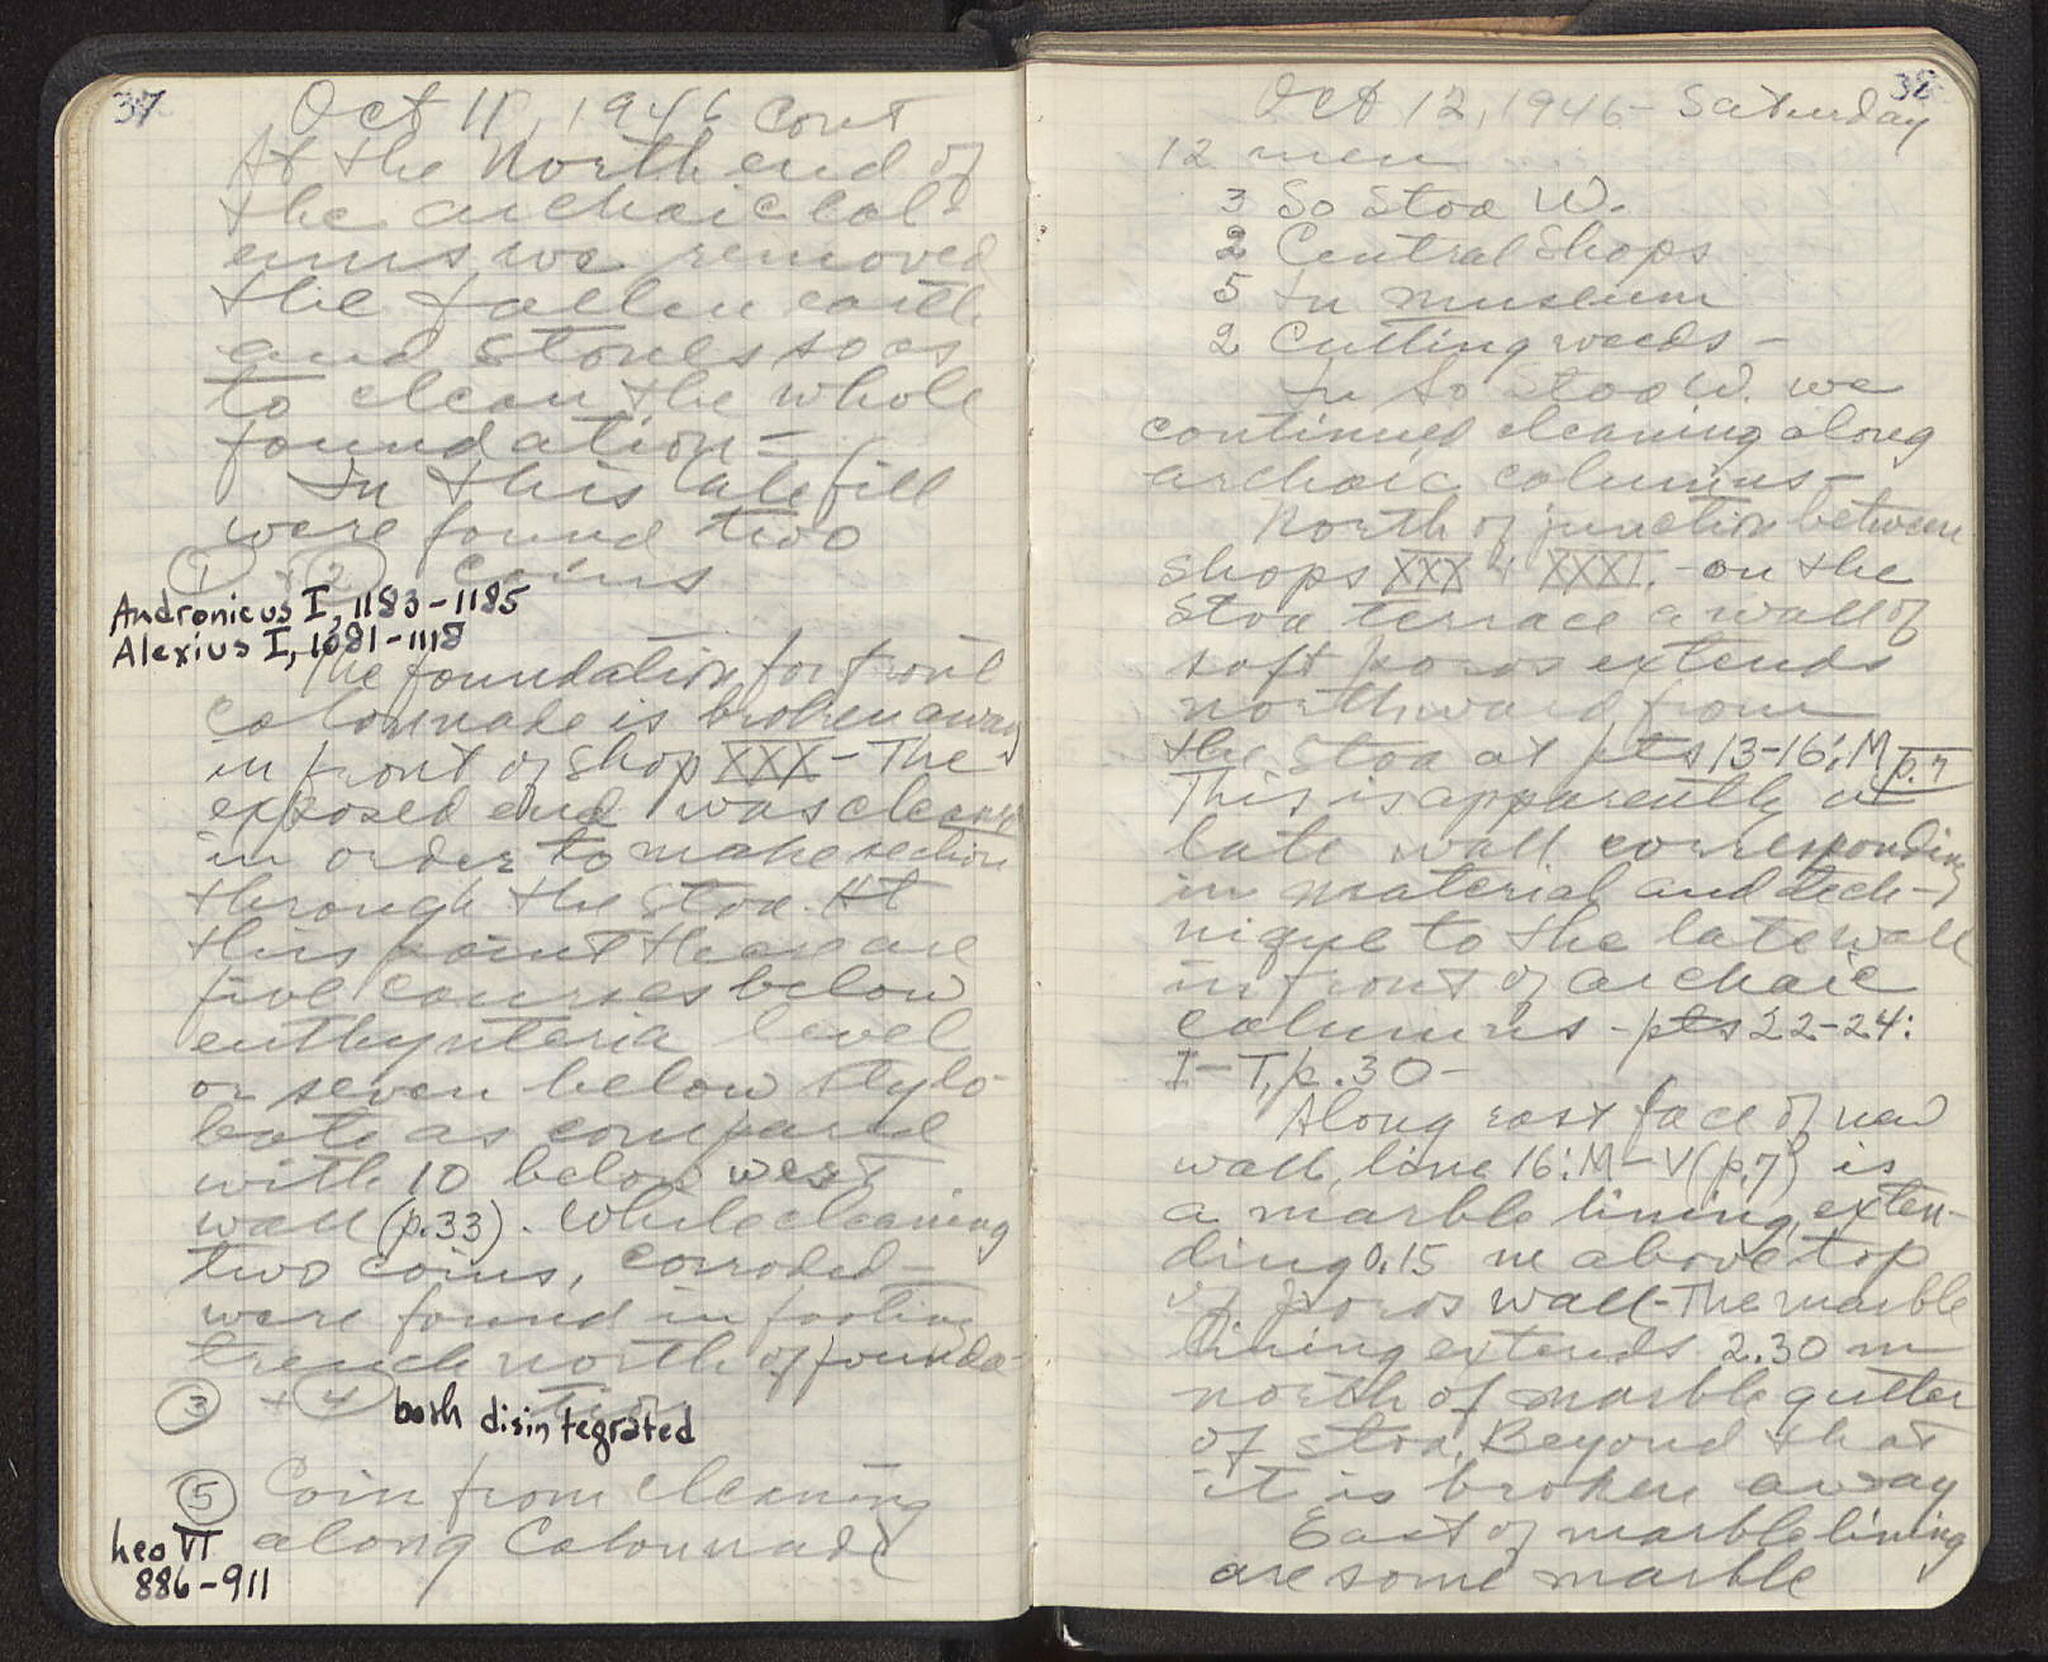 37
Oct 11, 1946 Cont
At the North end of
the archaic col-
umns we removed
the fallen earth
and stones so as
to clean the whole
foundation -
In this late fill
were found two
1 + 2 coins
Andronicus I, 1183-1185
Alexius I, 1081-1118
The foundation for front
colonnade is broken away
in front of Shop XXX - The
exposed end was cleaned
in order to make section
through the Stoa. At
this point there are
five courses below
euthynteria level
or seven below stylo-
bate as compared
with 10 below west
wall (p.33). While cleaning
two coins, corroded -
were found in footing
trench north of founda-
tion
3 + 4 both disintegrated
5 Coin from cleaning
along Colonnade
Leo VI
886-911
38
Oct 12, 1946 - Saturday
12 men
3 So Stoa W.
2 Central Shops
5 In museum
2 Cutting weeds -
In So Stoa W. we
continued cleaning along
archaic columns -
North of junction between
Shops XXX & XXXI. - on the
Stoa terrace a wall of
soft poros extends
northward from
the Stoa at pts 13-16:M p.7
This is apparently a
late wall corresponding
in material and tech-
nique to the late wall
in front of archaic
columns - pts 22-24:
I-T, p.30 -
Along east face of new
wall, line 16:M-V (p.7) is
a marble lining, exten-
ding 0.15 m above top
of poros wall - The marble
lining extends 2.30 m
north of marble gutter
of stoa. Beyond that
it is broken away
East of marble lining
are some marble